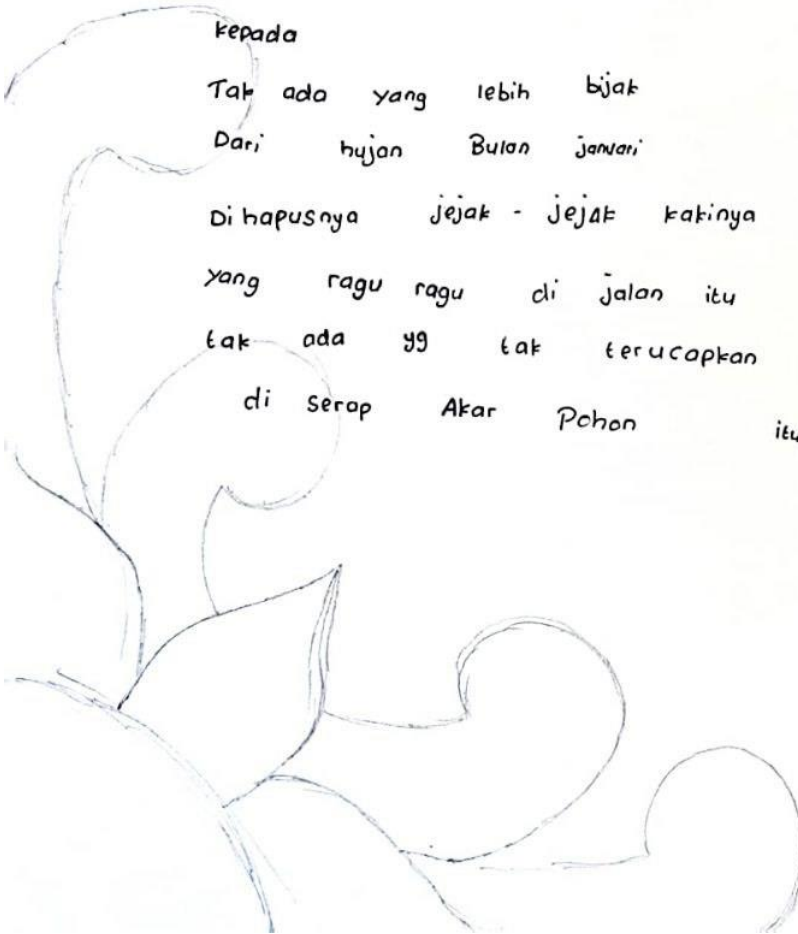 kepada
Tak ada yang lebih bijak
Dari hujan Bulan januari
Di hapusnya jejak - jejak kakinya
yang ragu ragu di jalan itu
tak ada yg tak terucapkan
di serap Akar Pohon itu